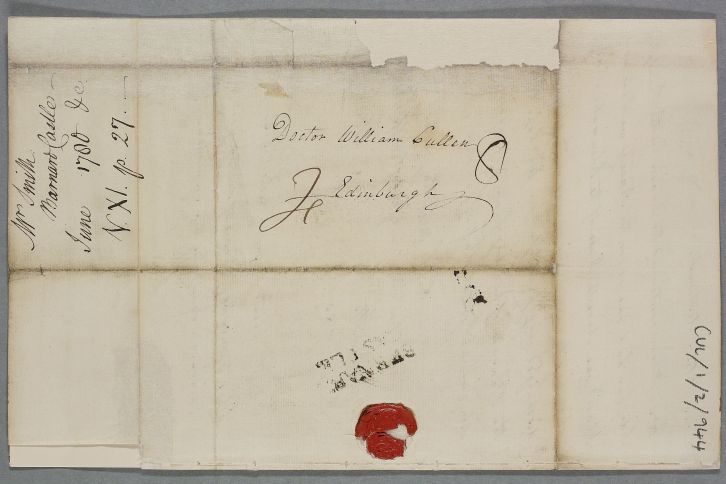 Doctor William Cullen
Edinburgh
Mr Smith
Barnard Castle
June 1780 &c
V XI. p. 27.
CUL/1/2/944